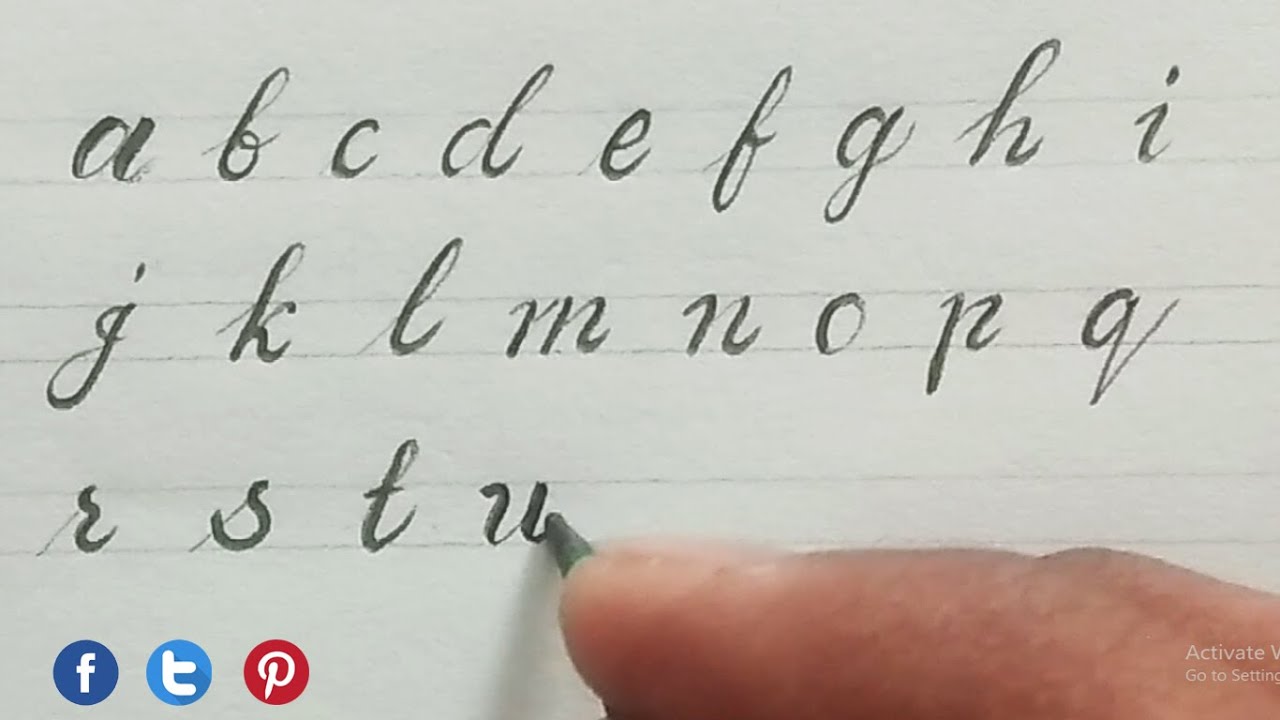 a b c d e f g h i
j k l m n o p q
r s t u
Activate
Go to Setting